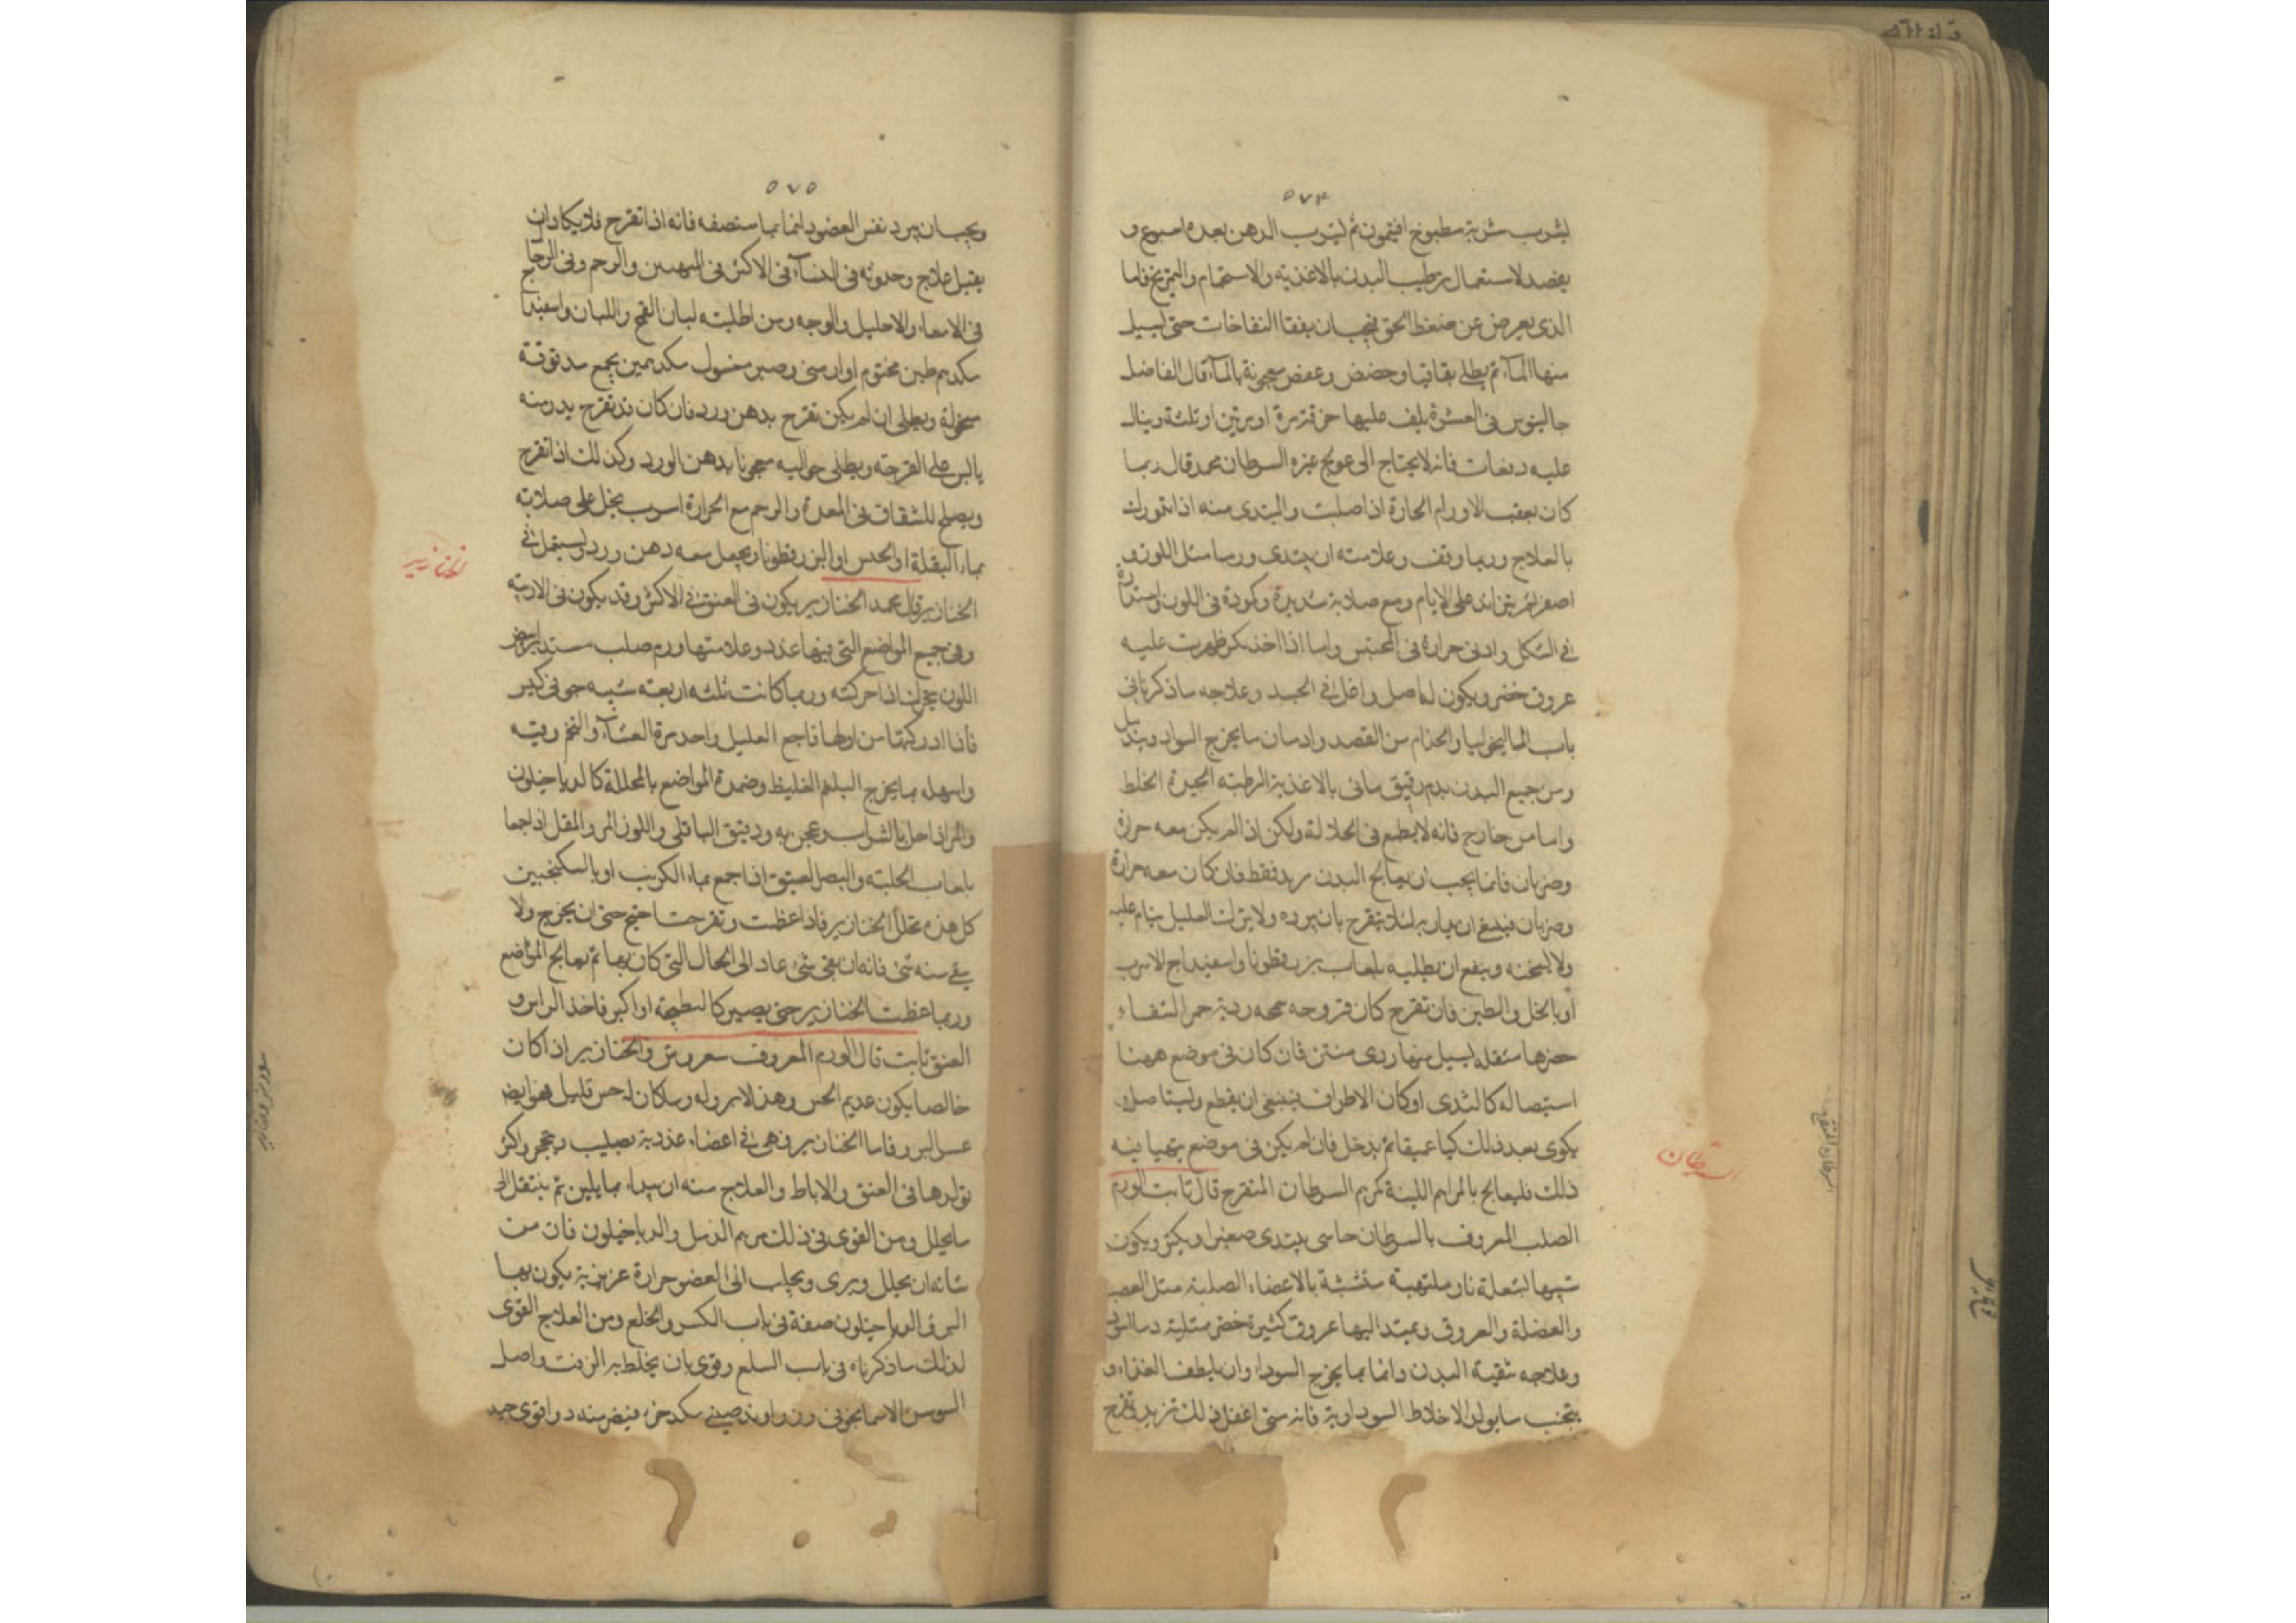 ٥٧٤
يشرب شربة مطبوخ افيتمون ثم يشرب الدهن بعده اسبوع و
يقصد لاستعمال ترطيب البدن بالاغذية والاستحمام والتمريخ فاما
الذى يعرض عن ضغط الخق فيجب ان يفقا النفاخات حتى يسيل
منها المآء ثم يطلى بقاقيا وحضض وعفص معجونة بالمآء قال الفاضل
جالينوس فى العشرة يلف عليها خرقة مرة او مرتين او ثلثة وينال
عليه دفعات فانه لا يحتاج الى عويج غيره السرطان محمد قال ربما
كان بعقب الاورام الحارة اذا صلبت والمبتدى منه اذا تدورك
بالعلاج وربما وقف وعلامته ان يبتدى ورما مثل اللوز و
اصغر ثم يتزائد على الايام ومع صلابة شديدة وكمودة فى اللون واستدارة
فى الشكل وادنى حرارة فى المجس واما اذا اخذ يكبر ظهرت عليه
عروق خضر ويكون له اصل داخل فى الجسد وعلاجه ما ذكرنا فى
باب الماليخوليا والجذام من الفصد وادمان ما يخرج السواد وتبديل
ومن جميع البدن بدم رقيق مائى بالاغذية الرطبة الجيدة الخلط
واما من خارج فانه لا يطمع فى انحلاله ولكن اذا لم يكن معه حرارة
وضربان فانما يجب ان يعالج البدن بريد فقط فان كان معه حرارة
وضربان فينبغى ان يدارى لئلا يتقرح بان يبرده ولا يترك العليل ينام عليه
ولا يسخنه وينفع ان يطليه بلعاب بزرقطونا واسفيداج الاسرب
او بالخل والطين فان تقرح كان قروحه سمجه ردية حمر الشفاء
خضرها متقلبه يسيل منها ردى منتن فان كان فى موضع ههنا
استيصاله كالثدى او كان الاطراف فينبغى ان يقطع وليستاصل و
يكوى بعد ذلك كيا عميقا ثم يدخل فان لم يكن فى موضع يتهيا فيه
ذلك فليعالج بالمراهم اللينة كمرهم السرطان المتقرح قال ثابت الورم
الصلب المعروف بالسرطان حاسى يبتدى صغيرا ويكبر ويكون
شبيها بشعلة نار ملتهبة متشبثة بالاعضاء الصلبة مثل العصب
والعضلة والعروق ويمتد اليها عروق كثيرة خضر ممتلية دما اسود
وعلاجه تنقية البدن دائما بما يخرج السوداء وان يلطف الغذاء و
يتجنب ما يولد الاخلاط السوداوية فانه متى اغفل ذلك تزيد وتقرح
السرطان
٥٧٥
ويجب ان يبرد نفس العضو دائما بما سنصفه فانه اذا تقرح فلا يكاد ان
يقبل علاج وحدوثه فى النسآء فى الاكثر فى الثديين والرحم وفى الرجال
فى الامعاء والاحليل والوجه ومن اطليته لباب القمح واللبان واسفيداج
مكدرهم طين مختوم او ارمنى وصبر مغسول مكدرهمين يجمع مدقوقة
منخولة ويطلى ان لم يكن تقرح بدهن ورد فان كان قد تقرح يذر منه
يابس على القرحة ويطلى حواليه معجونا بدهن الورد وكذلك اذا تقرح
ويصلح للشقاق فى المعدة والرحم مع الحرارة اسرب يحل على صلابة
بماء البقلة او الخس او البزرقطونا ويجعل معه دهن ورد يستعمل فى
الخنازير قال محمد الخنازير يكون فى العنق فى الاكثر وقد يكون فى الاربية
وفى جميع المواضع التى فيها غدد وعلامتها ورم صلب مستدير ابيض
اللون يتحرك اذا حركته وربما كانت ثلثه اربعة شبيه جوفى كبر
فاذا ادركتها من اولها فاجع العليل واحد مرة العشاء والتخم وقيه
واسهله بما يخرج البلغم الغليظ وضمد المواضع بالمحللة كالدياخيلون
والمر اذا حل بالشراب وعجن به ودقيق الباقلى واللوز المر والمقل اذا جمعا
بلعاب الحلبة والبصل العتيق اذا جمع بماء الكرنب او بالسكنجبين
كل هذه تحلل الخنازير فاذا عظمت وتقرحت احتيج حتى ان يخرج ولا
يبقى منه شى فانه ان بقى شى عاد الى الحال التى كان بها ثم يعالج المواضع
وربما عظمت الخنازير حتى يصير كالبطيخة او اكبر فاخذ الراس و
العنق ثابت قال الورم المعروف سفروس والخنازير اذا كان
خالصا يكون عديم الحس وهذا لا برو له وما كان له حس قليل فهو ايضا
عسر البرو فاما الخنازير فهى فى اعضاء غددية يصلب وتحجر واكثر
تولدها فى العنق والاباط والعلاج منه ان يبداء بما يلين ثم ينتقل الى
ما يحلل ومن القوى فى ذلك مرهم الرسل والدياخيلون فان من
شانه ان يحلل ويبرى ويجلب الى العضو حرارة غريزية يكون بها
البرو الدياخيلون صفة فى باب الكسر والخلع ومن العلاج القوى
لذلك ما ذكرناه فى باب السلع وقوى بان يخلط به الزفت واصل
السوسن الاسمانجونى وزراوند صينى مكد جزء فيضر منه دوا قوى جيد
الخنازير